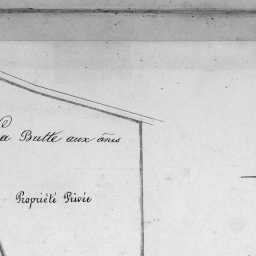 la Butte aux ânes
Propriété Privée